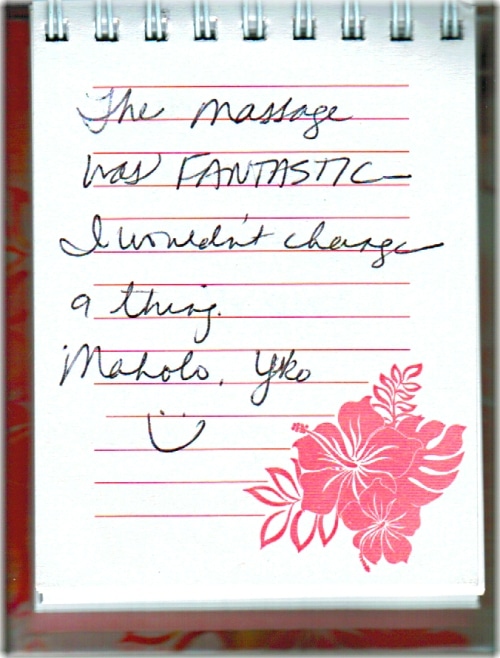 The massage
was FANTASTIC
I wouldn't change
a thing.
Maholo, Yko